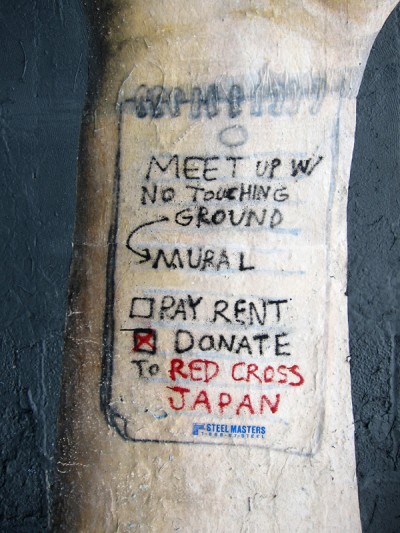 MEET UP W/
NO TOUCHING
GROUND
MURAL
PAY RENT
DONATE
TO RED CROSS
JAPAN
STEEL MASTERS